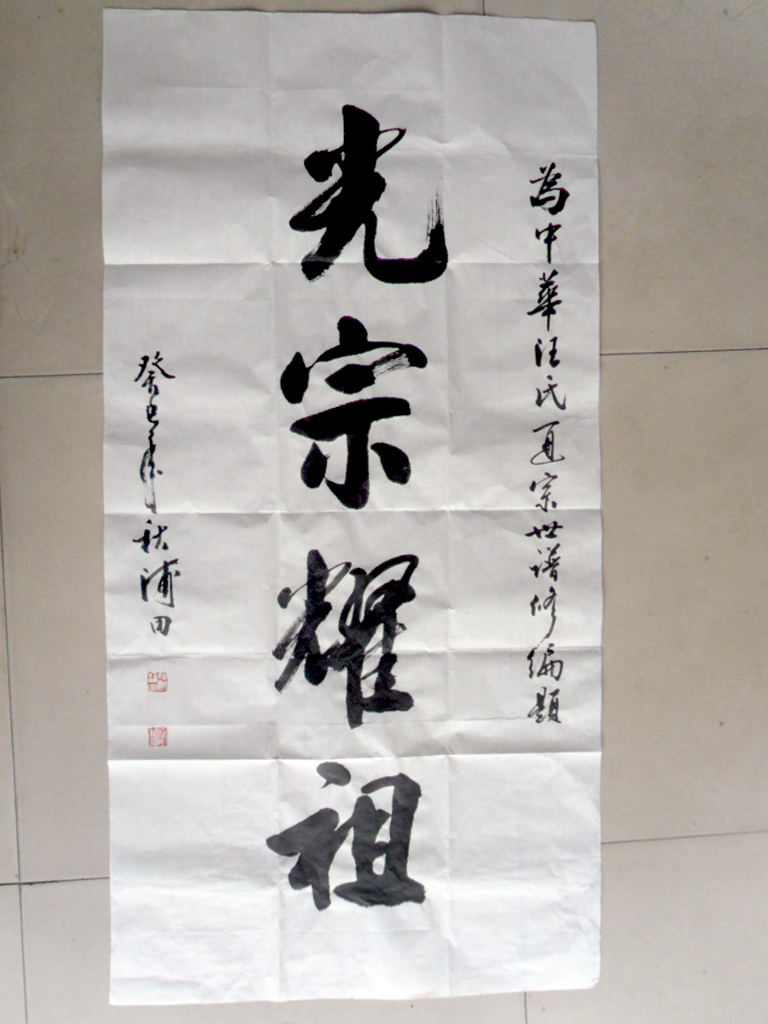 為中華汪氏通宗世譜修編題
光宗耀祖
癸巳年秋浦田